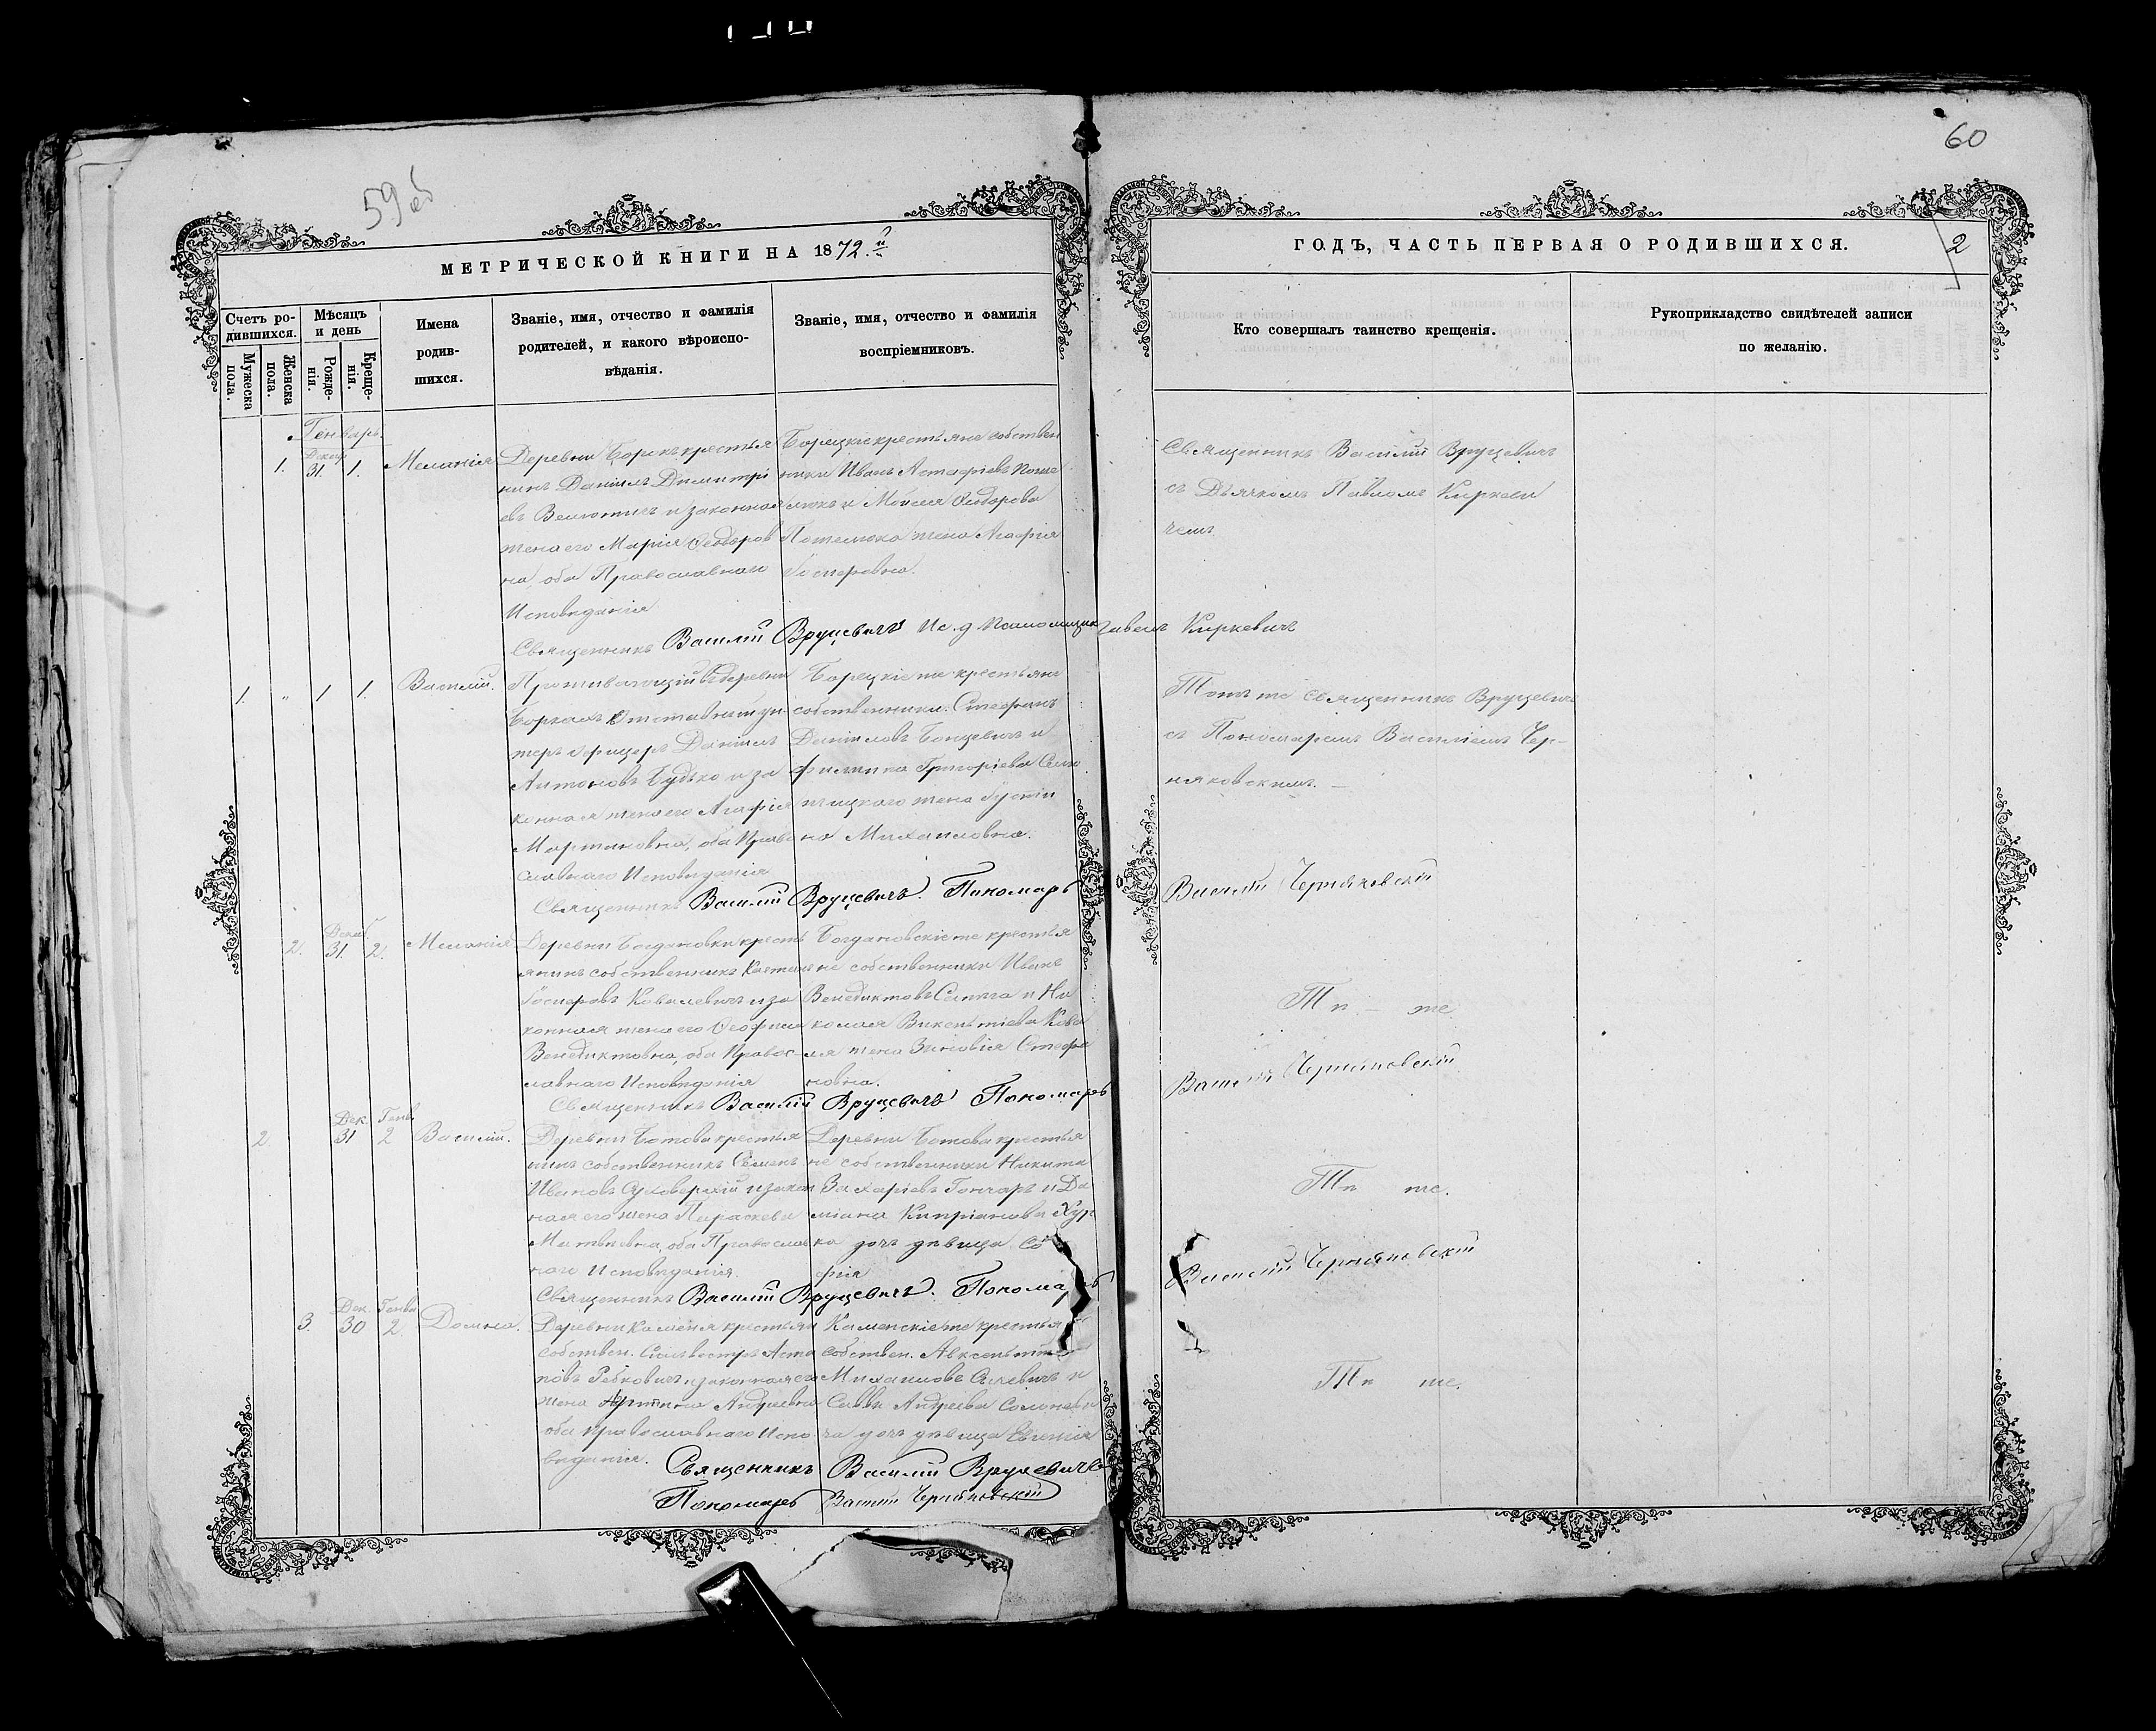 59об
60
МЕТРИЧЕСКОЙ КНИГИ НА 1872й
ГОДЪ, ЧАСТЬ ПЕРВАЯ О РОДИВШИХСЯ.
2
Счетъ ро-
дившихся.
Мужеска
пола.
Женска
пола.
Мѣсяцъ
и день
Рожде-
нія.
Креще-
нія.
Имена
родив-
шихся.
Званіе, имя, отчество и фамилія
родителей, и какого вѣроиспо-
вѣданія.
Званіе, имя, отчество и фамилія
воспріемниковъ.
Кто совершалъ таинство крещенія.
Рукоприкладство свидѣтелей записи
по желанію.
Генварь.
1. 31. 1. Меланія
Деревни Борокъ крестья
нинъ Даніилъ Димитрі
евъ и законная
жена его Марія Ѳеодоров
на, оба Православнаго
Исповѣданія
Борецкіе крестьяне собствен
ники Иванъ Астафіевъ
и Моисея Ѳеодорова
жена Агафія
Госпоровна.
Священникъ Василій Вруцевичъ с Дьячкомъ Павломъ Киркеви
чемъ
Священникъ Василій Вруцевичъ Киркевичъ
1. „ 1 1. Василій.
Проживающій въ деревни
Боркахъ Отставный ун
теръ офицеръ Даніилъ
Антоновъ Будько и за
конная жена его Агафія
Мартиновна, оба Право
славнаго Исповѣданія
Борецкіе же крестьяне
собственники. Стефанъ
Даніиловъ Бонцевичъ и
Григоріева
жена Густи
на Михаиловна.
Тотъ же Священникъ Вруцевичъ
съ Пономаремъ Василіемъ Чер-
няковскимъ. —
Священникъ Василій Вруцевичъ. Пономарь Василій Черняковскій
2. Декаб. 31. 2. Меланія
Деревни Богдановки кресть
янинъ собственникъ
Госпоровъ Ковалевичъ и за
конная жена его Ѳеофила
Венедиктовна, оба Правос-
лавнаго Исповѣданія
Богдановскіе же крестья
не собственники Иванъ
Венедиктовъ и Ни
колая Викентіева Кова
ля жена Зиновія Стефа
новна.
Тѣ — же
Священникъ Василій Вруцевичъ Пономарь Василій Черняковскій
2 Дек. 31 Генв. 2 Василій.
Деревни Ботова крестья
нинъ собственникъ Семенъ
Ивановъ и закон
ная его жена Параскева
Матвѣевна, оба Православ
наго Исповѣданія.
Деревни Ботова крестья
не собственники Никита
Захаріевъ Гончаръ и Да
міана Кипріанова
дочь дѣвица Со
фія
Тѣ же.
Священникъ Василій Вруцевичъ. Пономарь Василій Черняковскій
3. Дек. 30 Генв. 2. Домна.
Деревни Каменя крестьян
собствен. Сильвестръ
и законная его
жена Андреевна
оба православнаго Испо
вѣданія.
Каменскіе же крестья
собствен. Авксентій
Михаиловъ и
Саввы Андреева
дочь дѣвица Евгенія
Тѣ же.
Священникъ Василій Вруцевичъ
Пономарь Василій Черняковскій